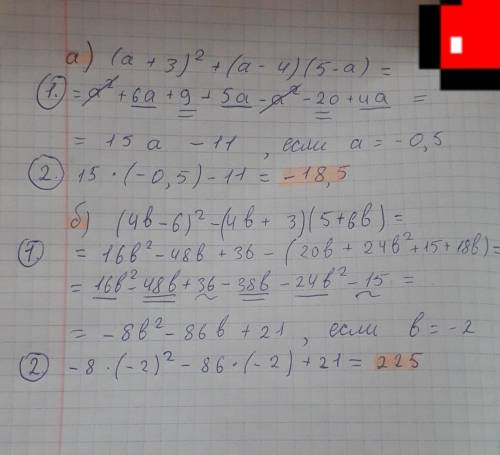 а) (a + 3)² + (a - 4)(5 - a) =
1. = a² + 6a + 9 + 5a - a² - 20 + 4a =
= 15a - 11, если a = -0,5
2. 15 · (-0,5) - 11 = -18,5
б) (4b - 6)² - (4b + 3)(5 + 6b) =
1. = 16b² - 48b + 36 - (20b + 24b² + 15 + 18b) =
= 16b² - 48b + 36 - 38b - 24b² - 15 =
= -8b² - 86b + 21, если b = -2
2 -8 · (-2)² - 86 · (-2) + 21 = 225